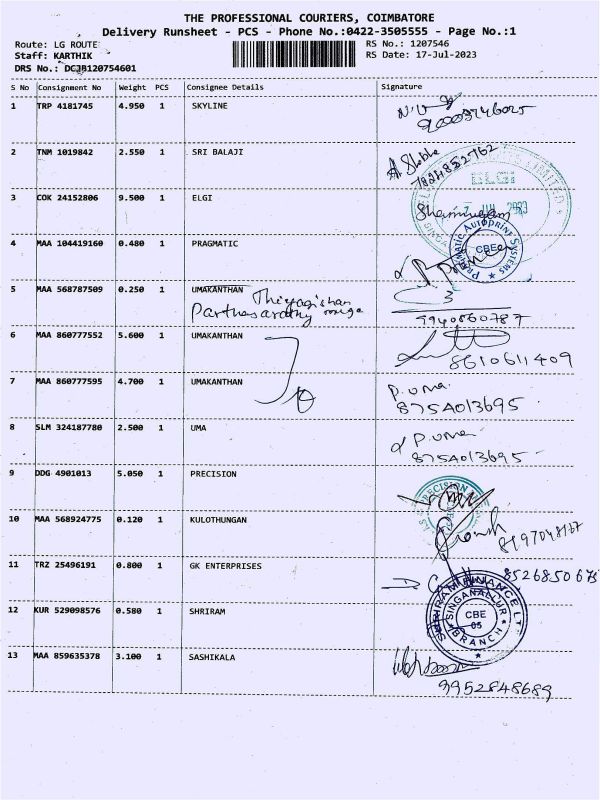 THE PROFESSIONAL COURIERS, COIMBATORE
Delivery Runsheet - PCS - Phone No.:0422-3505555 - Page No.:1
Route: LG ROUTE
Staff: KARTHIK
DRS No.: DCJB120754601
RS No.: 1207546
RS Date: 17-Jul-2023
S No Consignment No Weight PCS Consignee Details Signature
1 TRP 4181745 4.950 1 SKYLINE
2 TNM 1019842 2.550 1 SRI BALAJI
3 COK 24152806 9.500 1 ELGI
ELGI
Shanmugam
4 MAA 104419160 0.480 1 PRAGMATIC
Pragmatic Autoprint Systems
CBE
5 MAA 568787509 0.250 1 UMAKANTHAN
Parthasarathy
9940860787
6 MAA 860777552 5.600 1 UMAKANTHAN
8610611409
7 MAA 860777595 4.700 1 UMAKANTHAN
P. uma
8 SLM 324187780 2.500 1 UMA
P. uma
9 DDG 4901013 5.050 1 PRECISION
PRECISION
10 MAA 568924775 0.120 1 KULOTHUNGAN
8197048167
11 TRZ 25496191 0.800 1 GK ENTERPRISES
12 KUR 529098576 0.580 1 SHRIRAM
SHRIRAM FINANCE LTD
SINGANALLUR
CBE
05
BRANCH
13 MAA 859635378 3.100 1 SASHIKALA
9952848689